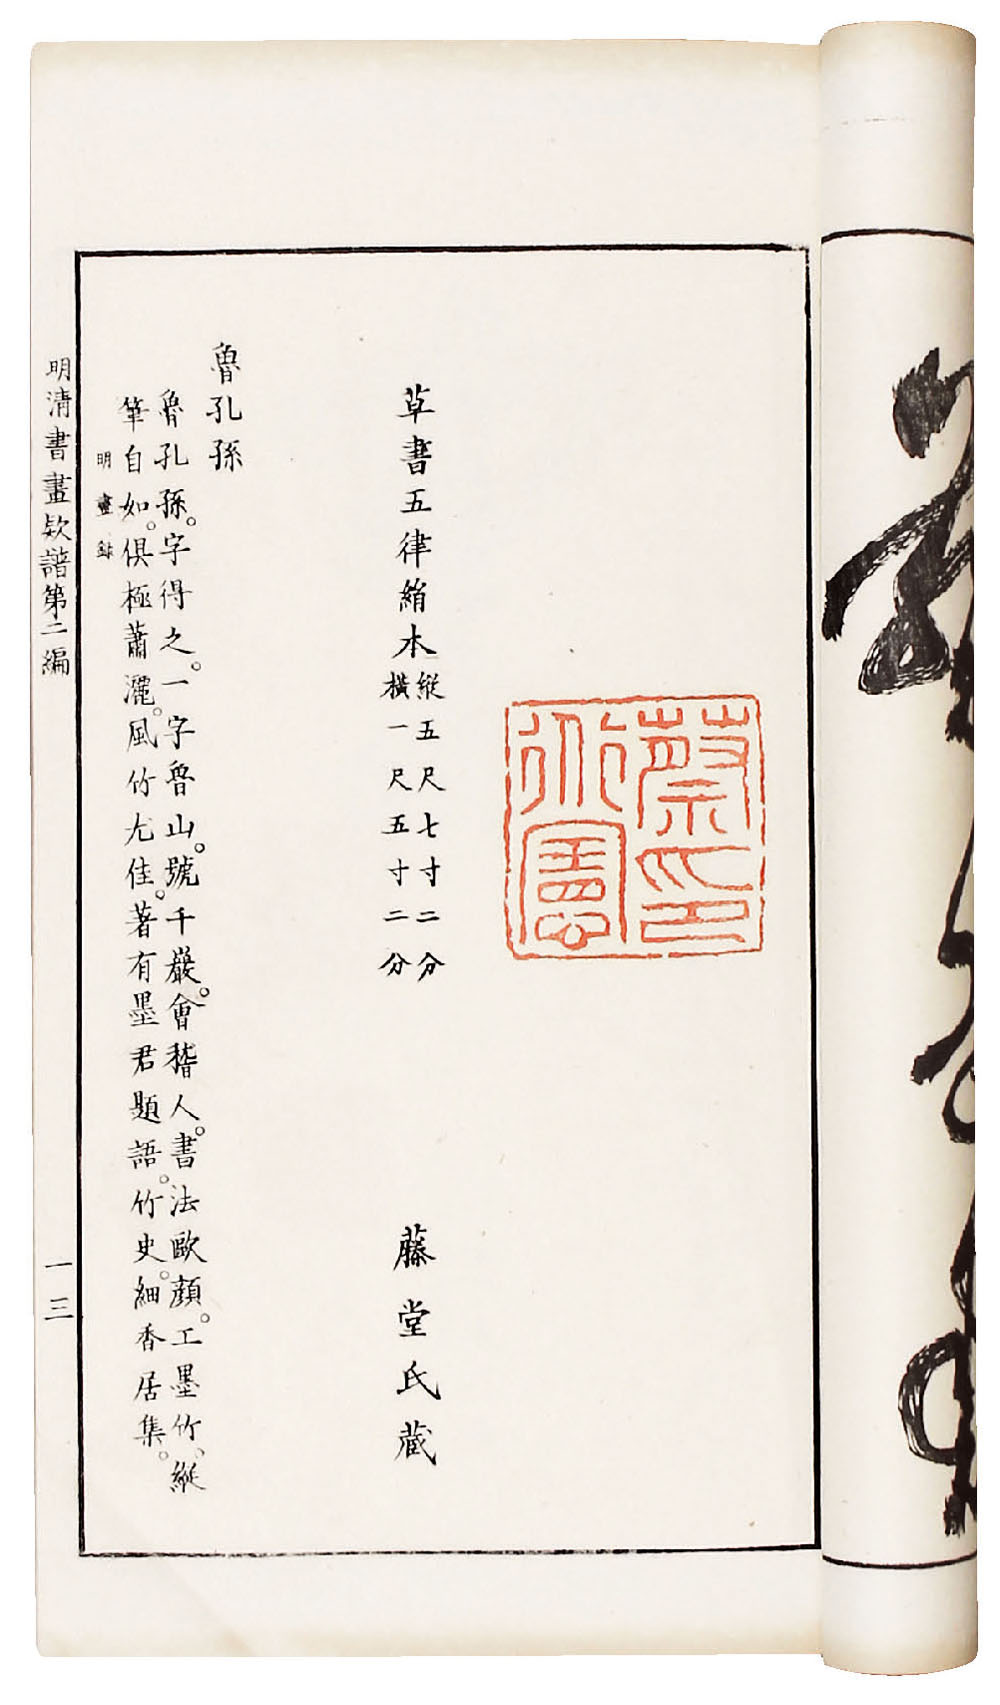 蔡印
憲
草書五律絹本
縱五尺七寸二分
橫一尺五寸二分
藤堂氏蔵
魯孔孫
魯孔孫。字得之。一字魯山。號千巖。會稽人。書法歐顏。工墨竹、縱
筆自如。俱極蕭灑。風竹尤佳。著有墨君題語。竹史。細香居集。
明畫錄
明清書畫欵譜第二編
一三